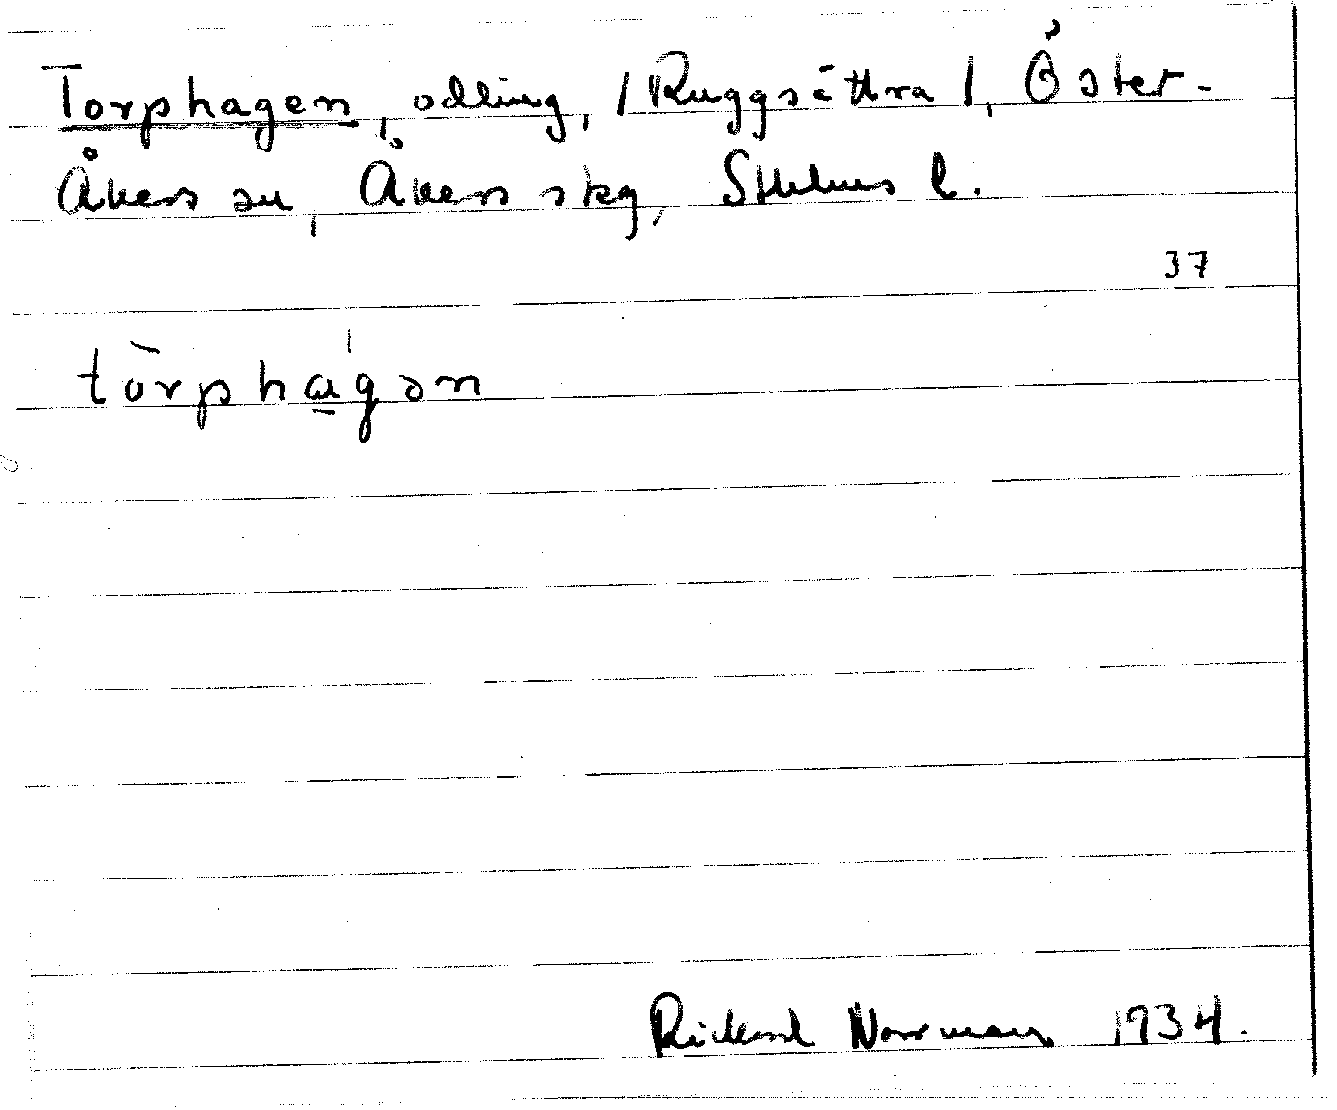 Torphagen, odling, /Ruggsättra/, Öster-
Åkers sn, Åkers skg, Sthlms l.
37
tòrpha̱gən
Rickard Norrman 1934.